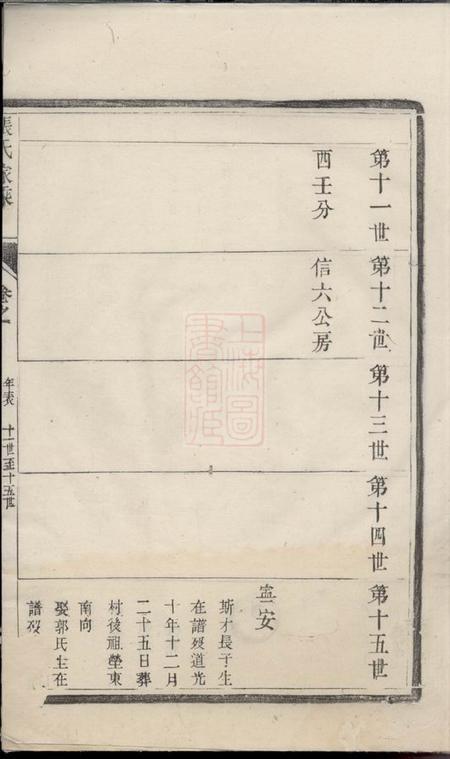 第十一世
第十二世
第十三世
第十四世
第十五世
西王分
信六公房
寧安
斯才長子生
在譜歿道光
十年十二月
二十五日葬
村後祖塋東
南向
娶郭氏生在
譜歿
張氏家乘
卷之一
年表
十一世至十五世
上海圖
書館藏